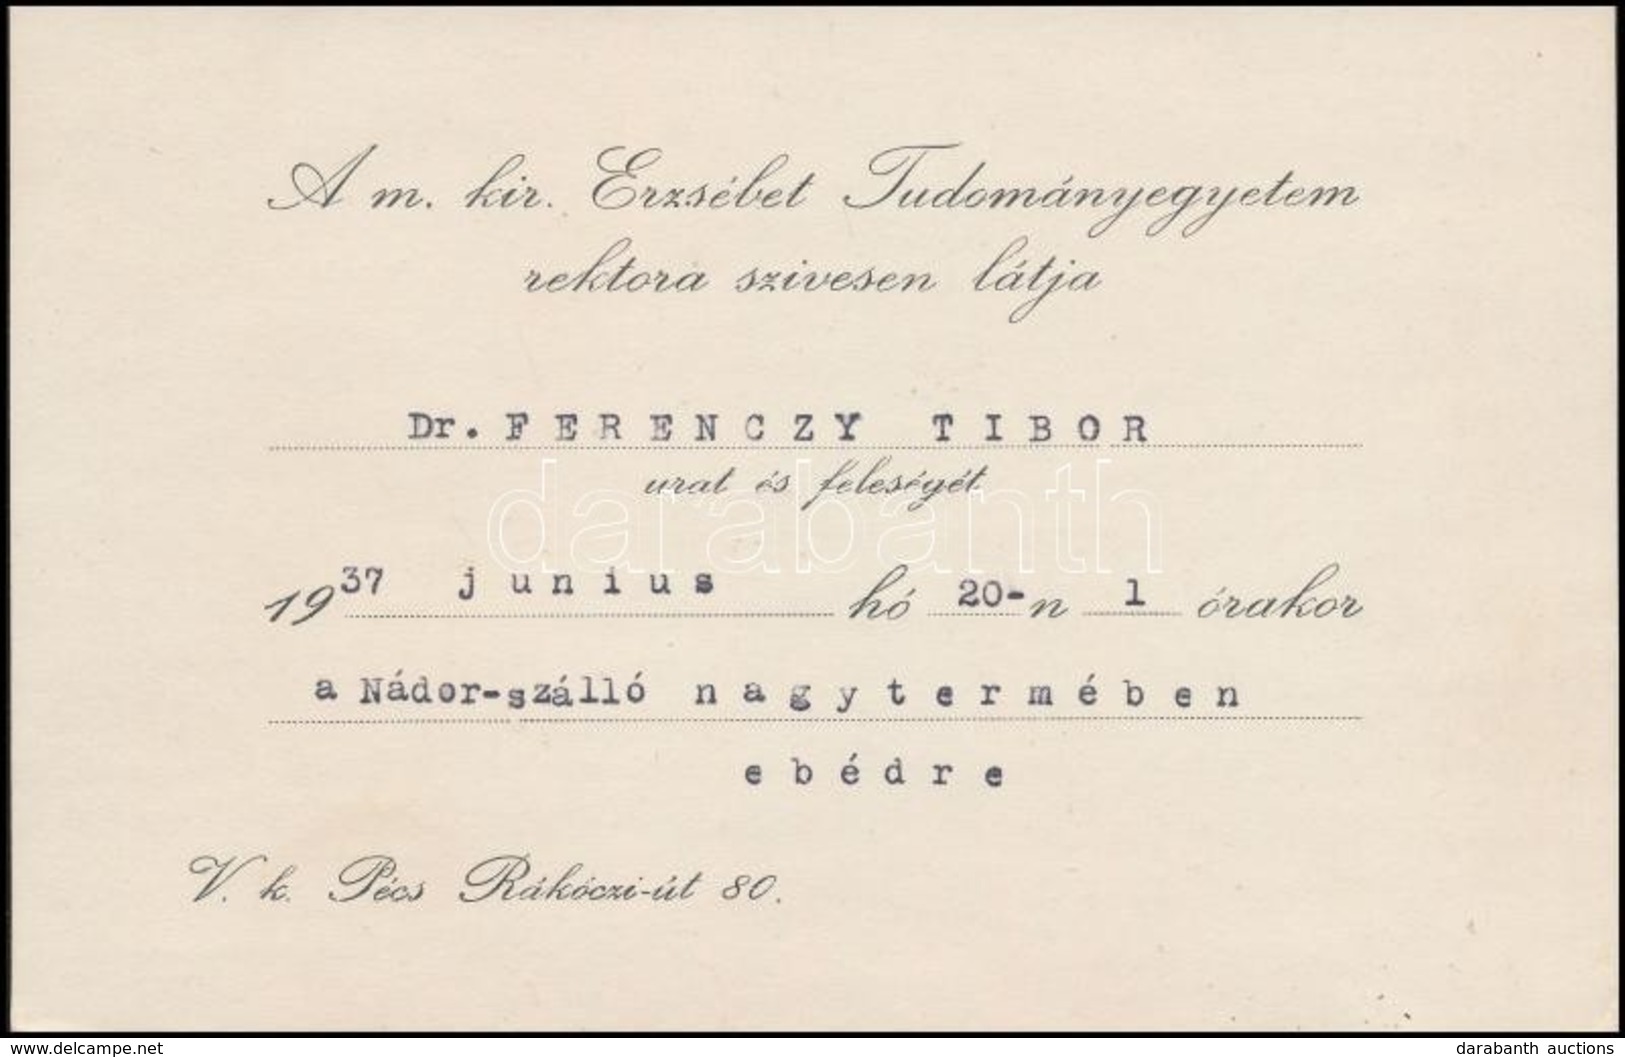 A m. kir. Erzsébet Tudományegyetem
rektora szivesen látja
Dr. FERENCZY TIBOR
urat és feleségét
1937 junius hó 20-n 1 órakor
a Nádor-szálló nagytermében
ebédre
V. k. Pécs Rákóczi-út 80.
darabanth
www.delcampe.net
darabanth auctions